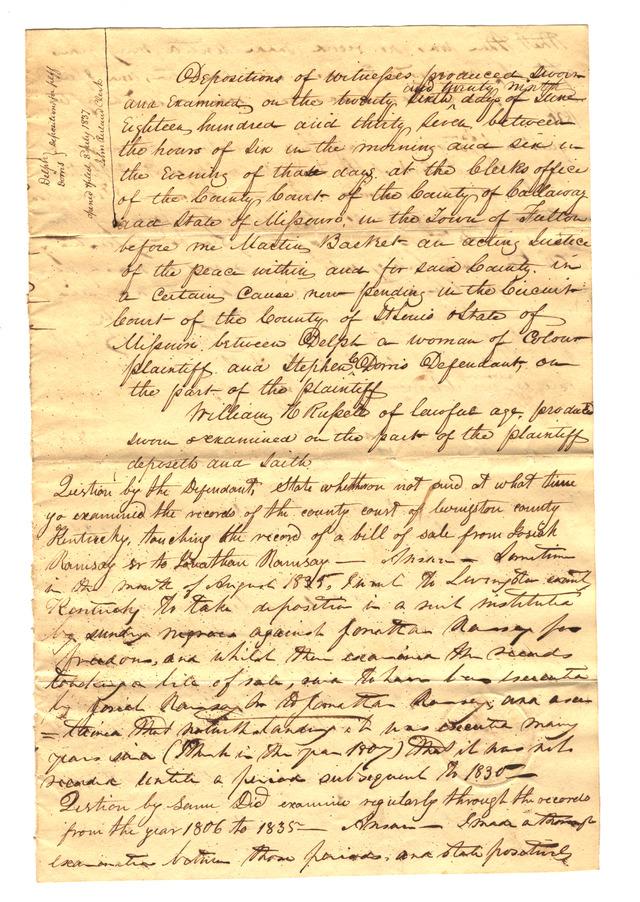 Delph
Dorris
Depositions for plff
opened & filed 8 July 1837
John Ruland Clerk
Depositions of witnesses produced sworn
and Examined on the twenty sixth and twenty ninth days of June
Eighteen hundred and thirty seven between
the hours of six in the morning and six in
the Evening of those days at the Clerks office
of the County Court of the County of Callaway
and State of Missouri, in the Town of Fulton
before me Martin Basket an acting Justice
of the peace within and for said County, in
a certain cause now pending in the Circuit
Court of the County of St Louis & State of
Missouri between Delph a woman of Colour
plaintiff and Stephen G Dorris Defendant, on
the part of the plaintiff
William H Russell of lawful age, produced
sworn & examined on the part of the plaintiff
deposeth and saith
Question by the Defendant, State whether or not and at what time
yo examined the records of the county court of Livingston county
Kentucky, touching the record of a bill of sale from Josiah
Ramsay sr to Jonathan Ramsay — Answer — Sometime
in the month of August 1835, I went to Livingston county
Kentucky to take deposition in a suit instituted
by sundry negroes against Jonathan Ramsey for
freedom, and whilst there examined the records
touching a bill of sale, said to have been executed
by Josiah Ramsay Sr to Jonathan Ramsey, and
that notwithstanding it was executed many
years since (I think in the year 1807) that it was not
recorded until a period subsequent to 1830 —
Question by same Did examine regularly through the records
from the year 1806 to 1835 — Answer — I made a thorough
examination between those periods, and state positively